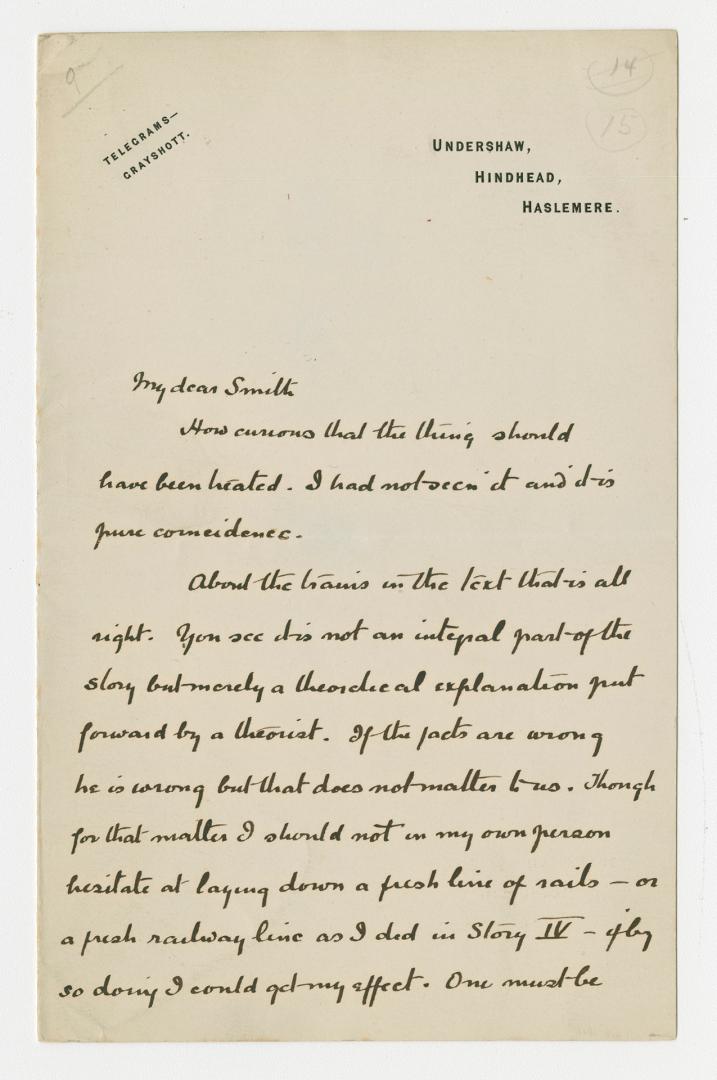 9
14
15
TELEGRAMS—
GRAYSHOTT.
UNDERSHAW,
HINDHEAD,
HASLEMERE.
My dear Smith
How curious that the thing should
have been heated. I had not seen it and it is
pure coincidence.
About the trains in the text that is all
right. You see it is not an integral part of the
story but merely a theoretical explanation put
forward by a theorist. If the facts are wrong
he is wrong but that does not matter to us. Though
for that matter I should not in my own person
hesitate at laying down a fresh line of rails – or
a fresh railway line as I did in Story IV – if by
so doing I could get my effect. One must be